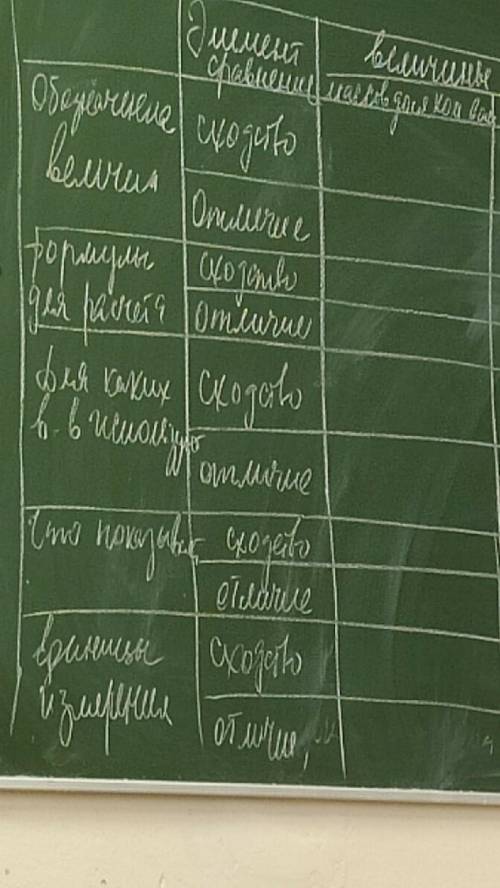 Элемент
сравнение
величины
массов доля
Обозначение
величин
сходство
Отличие
формулы
для расчёта
сходство
отличие
для каких
в-в использую
сходство
отличие
что показывает
сходство
отличие
единицы
измерения
сходство
отличие